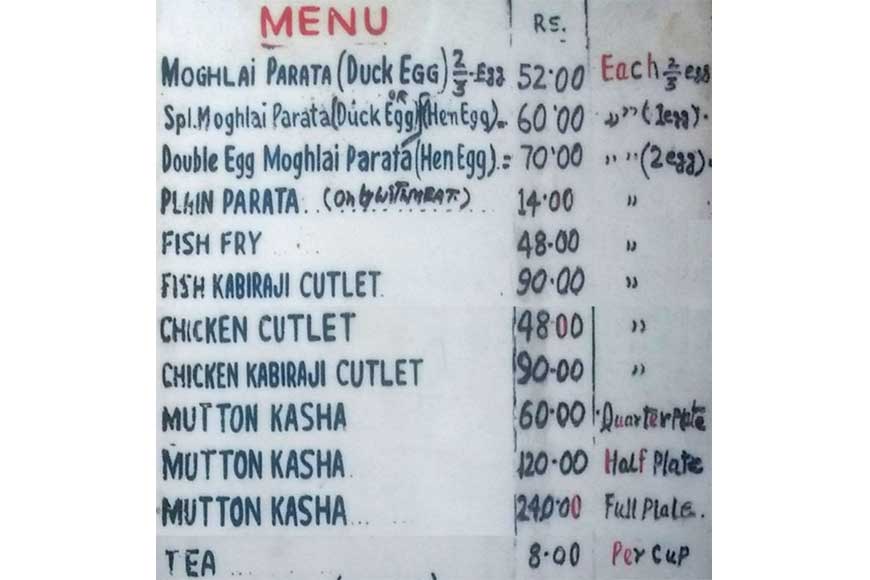 MENU RS.
MOGHLAI PARATA (DUCK EGG) 2/3 -Egg 52.00 Each 2/3 egg
Spl. Moghlai Parata (Duck Egg) OR (Hen Egg) = 60.00 ,, ,, (1egg).
Double Egg Moghlai Parata (Hen Egg). = 70.00 ,, ,, (2egg).
PLAIN PARATA.. (Only WITH MEAT.) 14.00 ,,
FISH FRY 48.00 ,,
FISH KABIRAJI CUTLET 90.00 ,,
CHICKEN CUTLET 48.00 ,,
CHICKEN KABIRAJI CUTLET 90.00 ,,
MUTTON KASHA 60.00 Quarter Plate
MUTTON KASHA 120.00 Half Plate
MUTTON KASHA... 240.00 Full Plate.
TEA ........ 8.00 Per Cup